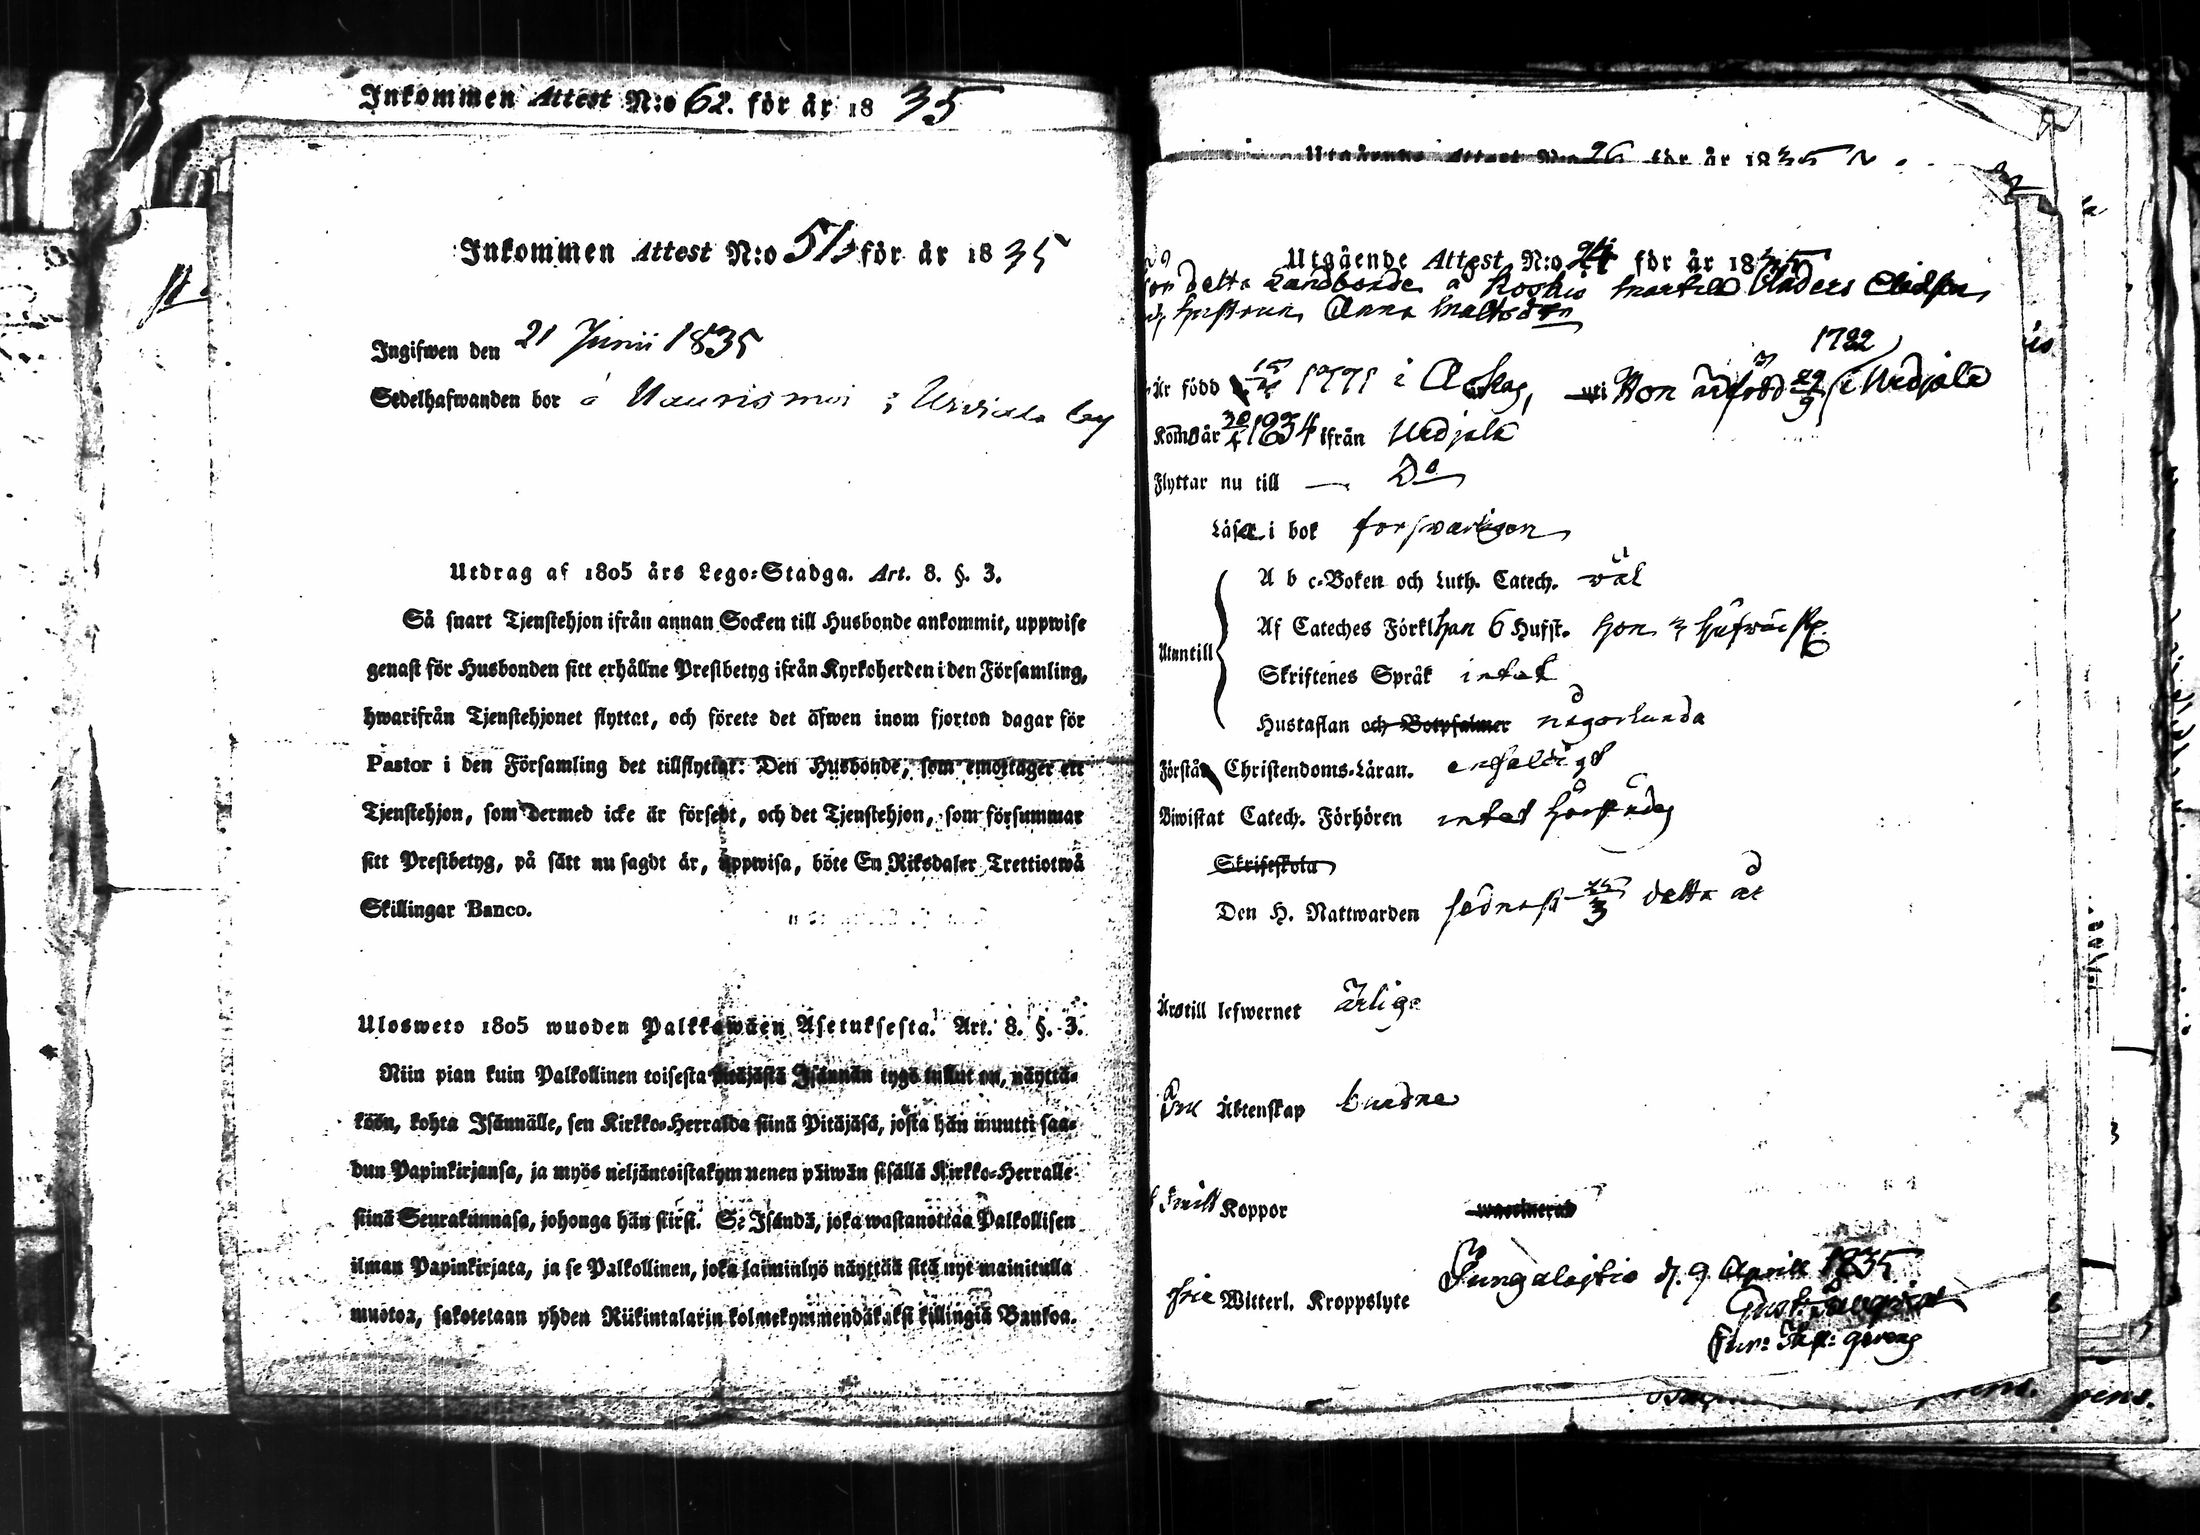 Inkommen Attest N:o 62. för år 18 35
Inkommen Attest N:o 51 för år 18 35
Ingifwen den 21 Junii 1835
Sedelhafwanden bor å Naurismäi i Urdiala by
Utdrag af 1805 års Lego-Stadga. Art. 8. §. 3.
Så snart Tjenstehjon ifrån annan Socken till Husbonde ankommit, uppwise
genast för Husbonden sitt erhållne Prestbetyg ifrån Kyrkoherden i den Församling,
hwarifrån Tjenstehjonet flyttat, och förete det äfwen inom fjorton dagar för
Pastor i den Församling det tillflyttat. Den Husbonde, som emottager ett
Tjenstehjon, som dermed icke är försedt, och det Tjenstehjon, som försummar
sitt Prestbetyg, på sätt nu sagdt är, uppwisa, böte En Riksdaler Trettiotwå
Skillingar Banco.
Ulosweto 1805 wuoden Palkkawäen Asetuksesta. Art. 8. §. 3.
Niin pian kuin Palkollinen toisesta Pitäjästä Isännän tygö tullut on, näyttä-
köön, kohta Isännälle, sen Kirkko-Herralda siinä Pitäjäsä, josta hän muutti saa-
dun Papinkirjansa, ja myös neljäntoistakymmenen päiwän sisällä Kirkko-Herralle
siinä Seurakunnasa, johonga hän siirsi. Se Isändä, joka wastanottaa Palkollisen
ilman Papinkirjata, ja se Palkollinen, joka laiminlyö näyttää sitä nyt mainitulla
muotoa, sakotetaan yhden Riikintalarin kolmekymmendäkaksi killingiä Bankoa.
Utgående Attest N:o 26 för år 18 35
Utgående Attest N:o 24 för år 18 35
detta Landbonde å Koskis Anders
hustrun Anna Mattsdr
Är född 1771 i uti Hon är född 29/9 1782 i Urdjala
Kom år 1834 ifrån Urdjala
Flyttar nu till — Do
Läsa i bok forswarligen
A b c-Boken och Luth. Catech. wäl
Utantill
Af Cateches Förkl han 6 Hufst. hon 3
Skriftenes Språk intet
Hustaflan och Botpsalmer någorlunda
Förstår Christendoms-Läran. enfaldigt
Biwistat Catech. Förhören intet
Skriftskola
Den H. Nattwarden sednast detta år
Äro till lefwernet ärliga
Äktenskap bundne
Koppor
Witterl. Kroppslyte d. 9 Aprill 1835